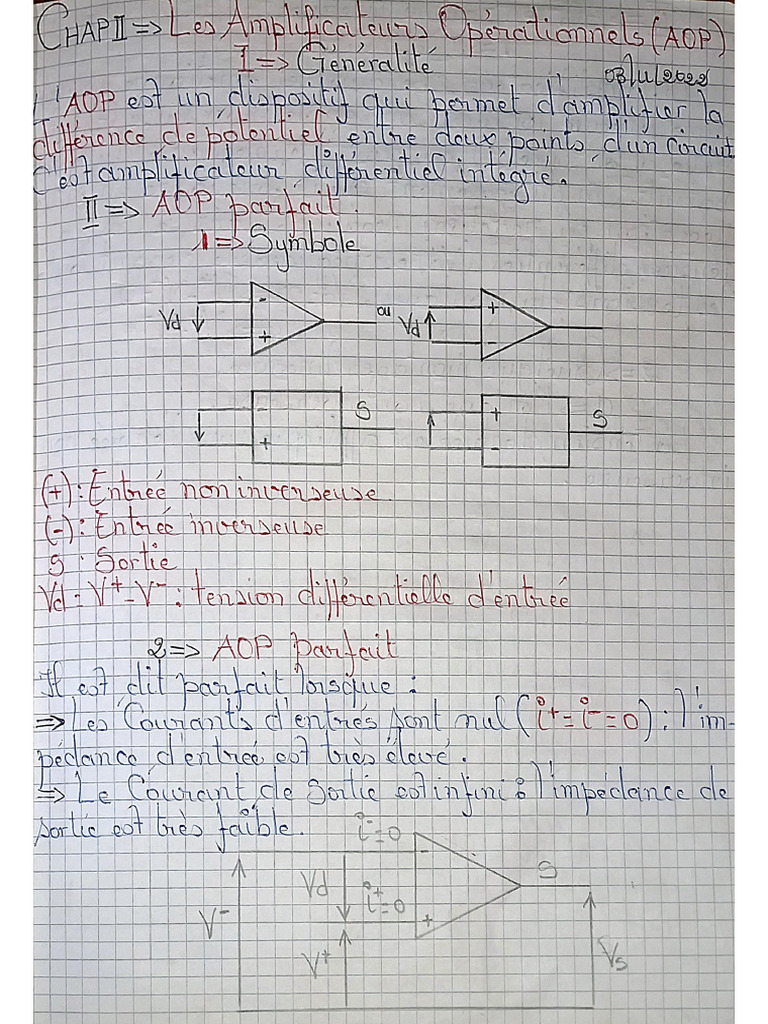 CHAP II => Les Amplificateurs Opérationnels (AOP)
I => Généralité
03/11/2022
L'AOP est un dispositif qui permet d'amplifier la
différence de potentiel entre deux points d'un circuit
C'est amplificateur différentiel intégré.
II => AOP parfait.
1 => Symbole
Vd - + ou Vd + -
- + S + - S
(+) : Entreé non inverseuse
(-) : Entrée inverseuse
S : Sortie
Vd = V+ - V- : tension différentielle d'entreé
2 => AOP parfait
Il est dit parfait lorsque :
=> Les Courants d'entrés sont nul (i+ = i- = 0) : l'im-
pédance d'entreé est très élevé.
=> Le Courant de sortie est infini : l'impédance de
sortie est très faible.
i-=0
- S
Vd i+=0
V- +
V+ Vs